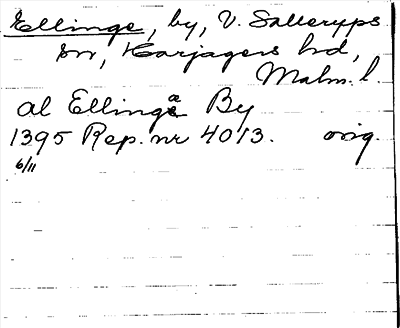 Ellinge, by, V. Sallerups
sn, Harjagers hd,
Malm. l.
al Ellinga By
1395 Rep. nr 4013. orig.
6/11